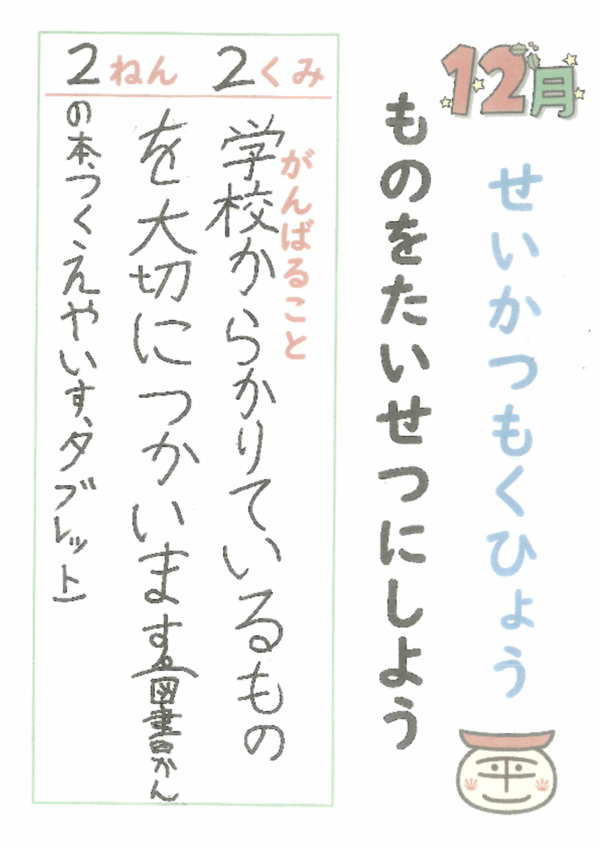 12月
せいかつもくひょう
ものをたいせつにしよう
2ねん 2くみ
がんばること
学校からかりているもの
を大切につかいます。(図書かん
の本、つくえやいす、タブレット)